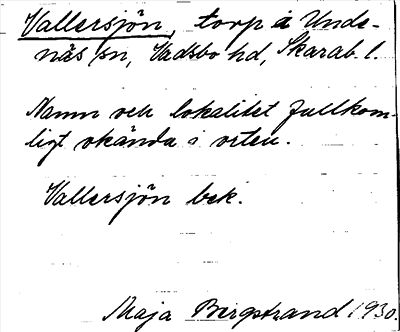 Vallersjön, torp å Unde-
näs sn, Vadsbo hd, Skarab. l.
Namn och lokalitet fullkom-
ligt okända i orten.
Vallersjön bek.
Maja Bergstrand 1930.